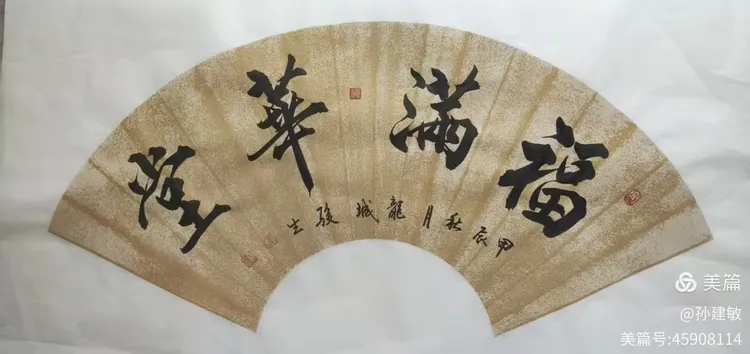 福滿華堂
甲辰秋月龍城駿生
美篇
@孙建敏
美篇号:45908114